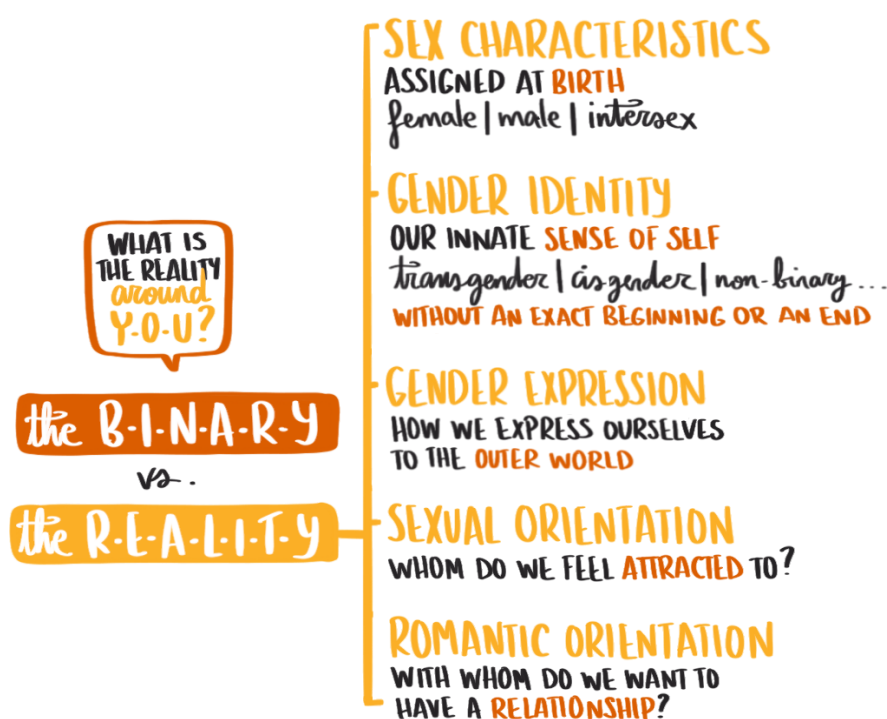 WHAT IS
THE REALITY
around
Y-O-U?
the B-I-N-A-R-Y
vs.
the R-E-A-L-I-T-Y
SEX CHARACTERISTICS
ASSIGNED AT BIRTH
female | male | intersex
GENDER IDENTITY
OUR INNATE SENSE OF SELF
transgender | cisgender | non-binary...
WITHOUT AN EXACT BEGINNING OR AN END
GENDER EXPRESSION
HOW WE EXPRESS OURSELVES
TO THE OUTER WORLD
SEXUAL ORIENTATION
WHOM DO WE FEEL ATTRACTED TO?
ROMANTIC ORIENTATION
WITH WHOM DO WE WANT TO
HAVE A RELATIONSHIP?